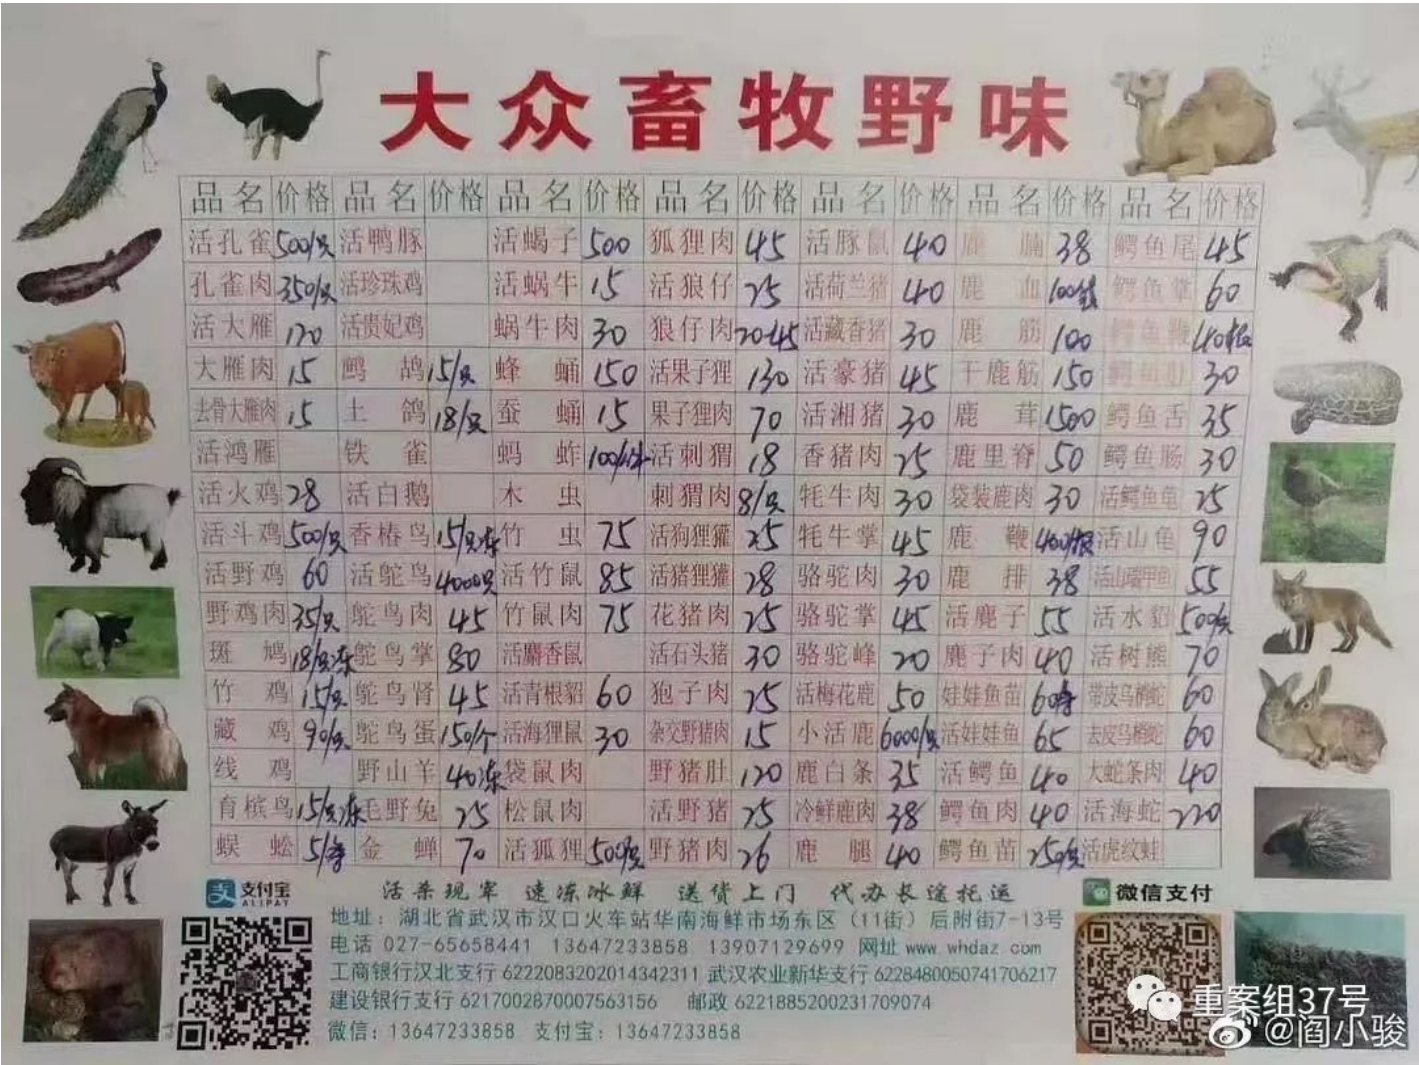 大众畜牧野味
品名 价格 品名 价格 品名 价格 品名 价格 品名 价格 品名 价格 品名 价格
活孔雀 500/只 活鸭豚 活蝎子 500 狐狸肉 45 活豚鼠 40 鹿腩 38 鳄鱼尾 45
孔雀肉 350/只 活珍珠鸡 活蜗牛 15 活狼仔 25 活荷兰猪 40 鹿血 鳄鱼掌 60
活大雁 120 活贵妃鸡 蜗牛肉 30 狼仔肉 20-45 活藏香猪 30 鹿筋 100 鳄鱼鞭 40/根
大雁肉 15 鹧鸪 15/只 蜂蛹 150 活果子狸 130 活豪猪 45 干鹿筋 150 鳄鱼肚 30
去骨大雁肉 15 土鸽 18/只 蚕蛹 15 果子狸肉 70 活湘猪 30 鹿茸 1500 鳄鱼舌 35
活鸿雁 铁雀 蚂蚱 活刺猬 18 香猪肉 25 鹿里脊 50 鳄鱼肠 30
活火鸡 28 活白鹅 木虫 刺猬肉 8/只 牦牛肉 30 袋装鹿肉 30 活鳄鱼龟 25
活斗鸡 500/只 香椿鸟 15/只冻 竹虫 75 活狗狸獾 25 牦牛掌 45 鹿鞭 400/根 活山龟 90
活野鸡 60 活鸵鸟 4000只 活竹鼠 85 活猪狸獾 28 骆驼肉 30 鹿排 38 活山瑞甲鱼 55
野鸡肉 35/只 鸵鸟肉 45 竹鼠肉 75 花猪肉 25 骆驼掌 45 活麂子 55 活水貂 500/只
斑鸠 18/只冻 鸵鸟掌 80 活麝香鼠 活石头猪 30 骆驼峰 20 麂子肉 40 活树熊 70
竹鸡 15/只 鸵鸟肾 45 活青根貂 60 狍子肉 25 活梅花鹿 50 娃娃鱼苗 带皮乌梢蛇 60
藏鸡 90/只 鸵鸟蛋 150/个 活海狸鼠 30 杂交野猪肉 15 小活鹿 6000/只 活娃娃鱼 65 去皮乌梢蛇 60
线鸡 野山羊 40冻 袋鼠肉 野猪肚 120 鹿白条 35 活鳄鱼 40 大蛇条肉 40
育槟鸟 15/只冻 毛野兔 25 松鼠肉 活野猪 25 冷鲜鹿肉 38 鳄鱼肉 40 活海蛇 220
蜈蚣 金蝉 70 活狐狸 500只 野猪肉 26 鹿腿 40 鳄鱼苗 250/只 活虎纹蛙
支付宝 活杀现宰 速冻冰鲜 送货上门 代办长途托运 微信支付
ALIPAY
地址：湖北省武汉市汉口火车站华南海鲜市场东区（11街）后附街7-13号
电话 027-65658441 13647233858 13907129699 网址 www.whdaz.com
工商银行汉北支行 6222083202014342311 武汉农业新华支行 6228480050741706217
建设银行支行 6217002870007563156 邮政 6221885200231709074
微信：13647233858 支付宝：13647233858
重案组37号
@阎小骏